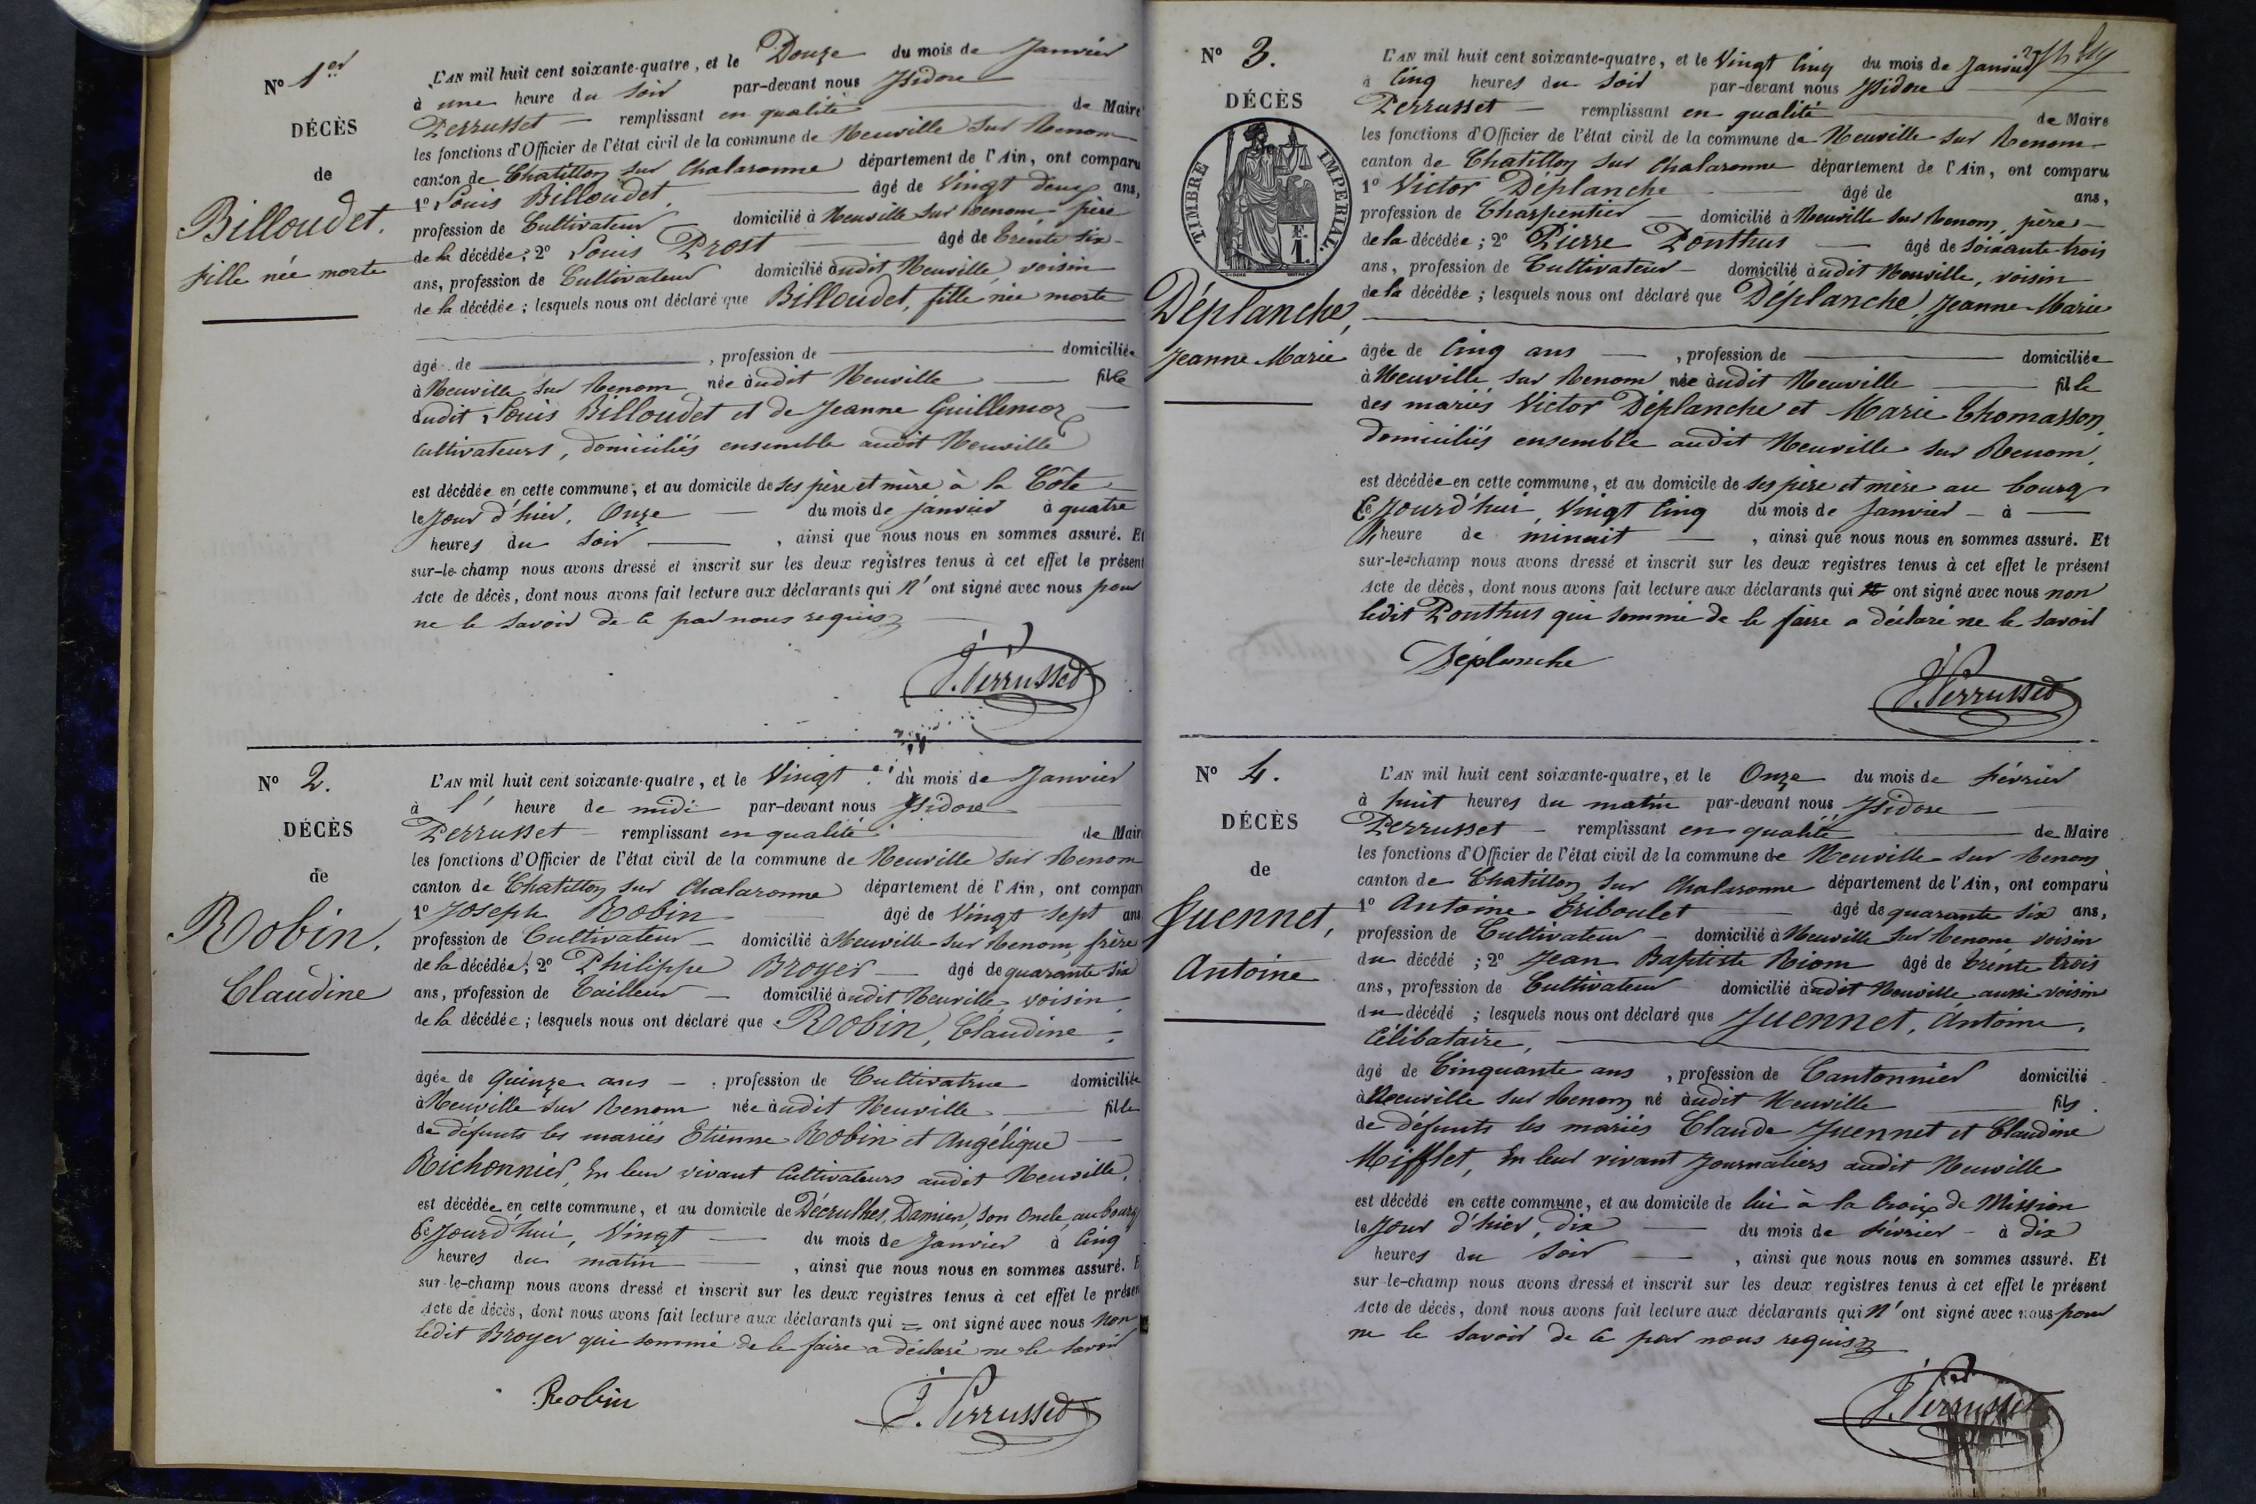 Nº 1er
DÉCÈS
de
Billoudet.
fille née morte
L'AN mil huit cent soixante-quatre, et le Douze du mois de Janvier
à une heure du soir par-devant nous Isidore
Perrusset remplissant en qualité de Maire
les fonctions d'Officier de l'état civil de la commune de Neuville sur Renom
canton de Chatillon sur Chalaronne département de l'Ain, ont comparu
1º Louis Billoudet. âgé de Vingt deux ans,
profession de Cultivateur domicilié à Neuville sur Renom, père
de la décédée; 2º Louis Prost âgé de trente six
ans, profession de Cultivateur domicilié audit Neuville, voisin
de la décédée; lesquels nous ont déclaré que Billoudet, fille née morte
âgé de , profession de domiciliée
à Neuville sur Renom née audit Neuville fille
dudit Louis Billoudet et de Jeanne Guillemoz
cultivateurs, domiciliés ensemble audit Neuville
est décédée en cette commune, et au domicile de ses père et mère à la Côte
le Jour d'hier, Onze du mois de janvier à quatre
heures du soir , ainsi que nous nous en sommes assuré. Et
sur-le-champ nous avons dressé et inscrit sur les deux registres tenus à cet effet le présent
Acte de décès, dont nous avons fait lecture aux déclarants qui n'ont signé avec nous pour
ne le savoir de ce par nous requis
J. Perrusset
Nº 2.
DÉCÈS
de
Robin.
Claudine
L'AN mil huit cent soixante-quatre, et le Vingt du mois de Janvier
à l' heure de midi par-devant nous Isidore
Perrusset remplissant en qualité de Maire
les fonctions d'Officier de l'état civil de la commune de Neuville sur Renom
canton de Chatillon sur Chalaronne département de l'Ain, ont comparu
1º Joseph Robin âgé de Vingt sept ans
profession de Cultivateur domicilié à Neuville sur Renom, frère
de la décédée; 2º Philippe Broyer âgé de quarante six
ans, profession de Tailleur domicilié audit Neuville, voisin
de la décédée; lesquels nous ont déclaré que Robin, Claudine
âgée de Quinze ans , profession de Cultivatrice domiciliée
à Neuville sur Renom née audit Neuville fille
de défunts les mariés Etienne Robin et Angélique
Richonnier, En leur vivant Cultivateurs audit Neuville.
est décédée en cette commune, et au domicile de Décrulhes, Damien, son Oncle, au bourg
Ce Jourd'hui, Vingt du mois de Janvier à Cinq
heures du matin , ainsi que nous nous en sommes assuré. E
sur-le-champ nous avons dressé et inscrit sur les deux registres tenus à cet effet le présen
Acte de décès, dont nous avons fait lecture aux déclarants qui ont signé avec nous Non
ledit Broyer qui sommé de le faire a déclaré ne le savoir
Robin
J. Perrusset
Nº 3.
DÉCÈS
TIMBRE IMPERIAL.
F. 1.
Déplanche,
Jeanne Marie
L'AN mil huit cent soixante-quatre, et le Vingt Cinq du mois de Janvier
à Cinq heures du Soir par-devant nous Isidore
Perrusset remplissant en qualité de Maire
les fonctions d'Officier de l'état civil de la commune de Neuville sur Renom
canton de Chatillon sur Chalaronne département de l'Ain, ont comparu
1º Victor Déplanche âgé de ans,
profession de Charpentier domicilié à Neuville sur Renom, père
de la décédée; 2º Pierre Ponthus âgé de Soixante trois
ans, profession de Cultivateur domicilié audit Neuville, voisin
de la décédée; lesquels nous ont déclaré que Déplanche, Jeanne Marie
âgée de Cinq ans , profession de domiciliée
à Neuville sur Renom née audit Neuville fille
des mariés Victor Déplanche et Marie Thomasson,
domiciliés ensemble audit Neuville sur Renom,
est décédée en cette commune, et au domicile de ses père et mère au bourg
Ce Jourd'hui, Vingt Cinq du mois de Janvier à
heure de minuit , ainsi que nous nous en sommes assuré. Et
sur-le-champ nous avons dressé et inscrit sur les deux registres tenus à cet effet le présent
Acte de décès, dont nous avons fait lecture aux déclarants qui ont signé avec nous non
ledit Ponthus qui sommé de le faire a déclaré ne le savoir
Déplanche
J. Perrusset
Nº 4.
DÉCÈS
de
Juennet,
Antoine
L'AN mil huit cent soixante-quatre, et le Onze du mois de Février
à huit heures du matin par-devant nous Isidore
Perrusset remplissant en qualité de Maire
les fonctions d'Officier de l'état civil de la commune de Neuville sur Renom
canton de Chatillon sur Chalaronne département de l'Ain, ont comparu
1º Antoine Triboulet âgé de quarante six ans,
profession de Cultivateur domicilié à Neuville sur Renom voisin
du décédé; 2º Jean Baptiste Riom âgé de trente trois
ans, profession de Cultivateur domicilié audit Neuville, aussi voisin
du décédé; lesquels nous ont déclaré que Juennet, Antoine,
Célibataire,
âgé de Cinquante ans , profession de Cantonnier domicilié
à Neuville sur Renom né audit Neuville fils
de défunts les mariés Claude Juennet et Claudine
Mifflet, En leur vivant Journaliers audit Neuville
est décédé en cette commune, et au domicile de lui à la Croix de Mission
le Jour d'hier, dix du mois de Février à dix
heures du Soir , ainsi que nous nous en sommes assuré. Et
sur-le-champ nous avons dressé et inscrit sur les deux registres tenus à cet effet le présent
Acte de décès, dont nous avons fait lecture aux déclarants qui n'ont signé avec nous pour
ne le savoir de ce par nous requis
J. Perrusset